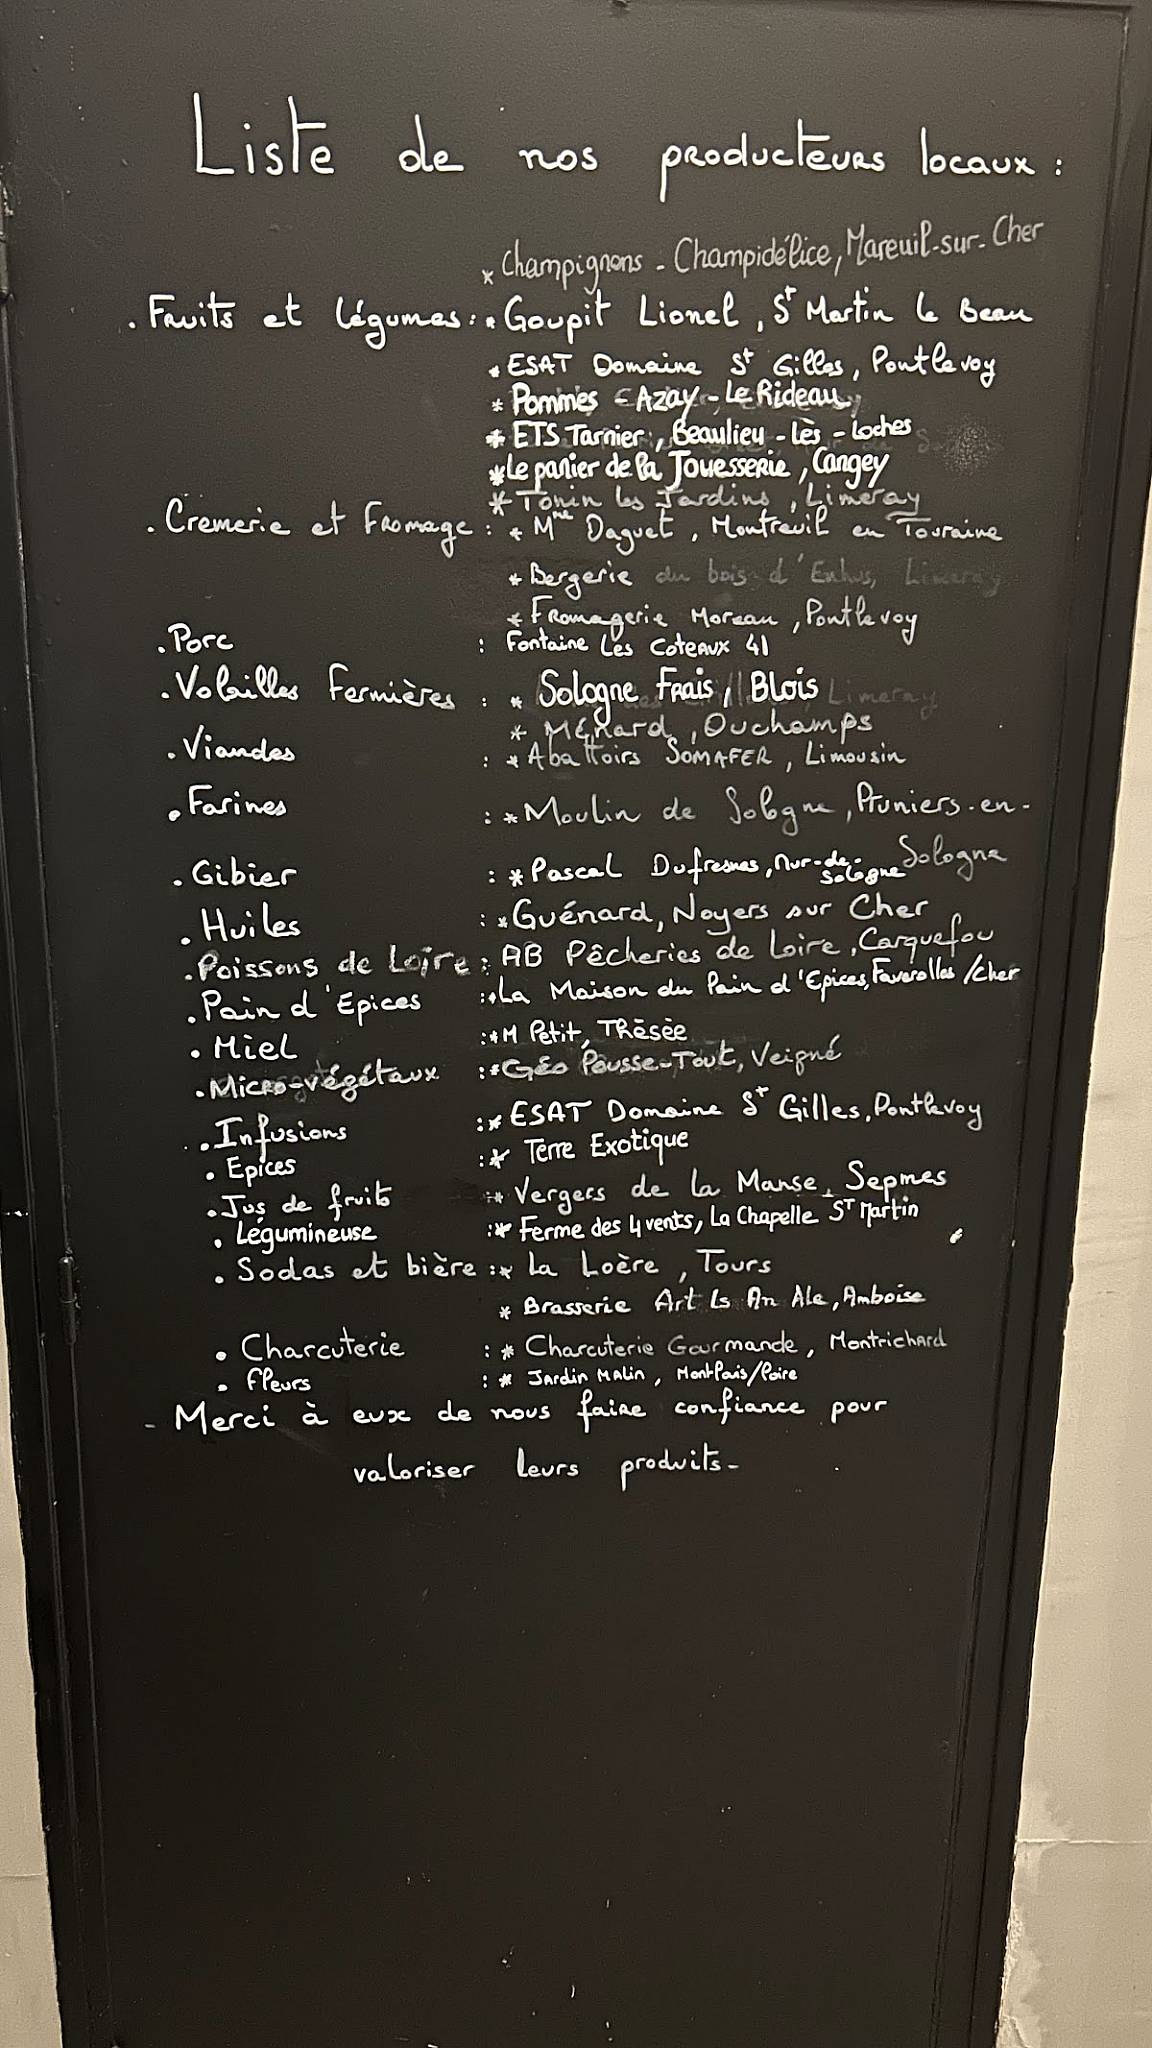 Liste de nos producteurs locaux :
* Champignons - Champidélice, Mareuil-sur-Cher
. Fruits et légumes : * Goupit Lionel, St Martin le Beau
* ESAT Domaine St Gilles, Pontlevoy
* Pommes - Azay-Le Rideau
* ETS Tarnier, Beaulieu-lès-Loches
* Le panier de la Jouesserie, Cangey
* Tonin les Jardins, Limeray
. Crèmerie et Fromage : * Mme Daguet, Montreuil en Touraine
* Bergerie du bois d' Limeray
* Fromagerie Moreau, Pontlevoy
. Porc : Fontaine Les Coteaux 41
. Volailles Fermières : * Sologne Frais, Blois Limeray
* Ménard, Ouchamps
. Viandes : * Abattoirs SOMAFER, Limousin
. Farines : * Moulin de Sologne, Pruniers-en-Sologne
. Gibier : * Pascal Dufresnes, Mur-de-Sologne
. Huiles : * Guénard, Noyers sur Cher
. Poissons de Loire : AB Pêcheries de Loire, Carquefou
. Pain d'Epices : * La Maison du Pain d'Epices, Faverolles/Cher
. Miel : * M Petit, Thèsèe
. Micro-végétaux : * Géo Pousse-Tout, Veigné
. Infusions : * ESAT Domaine St Gilles, Pontlevoy
. Epices : * Terre Exotique
. Jus de fruits : * Vergers de la Manse, Sepmes
. Légumineuse : * Ferme des 4 vents, La Chapelle St Martin
. Sodas et bière : * La Loère, Tours
* Brasserie Art Is An Ale, Amboise
. Charcuterie : * Charcuterie Gourmande, Montrichard
. Fleurs : * Jardin Malin,
- Merci à eux de nous faire confiance pour
valoriser leurs produits-